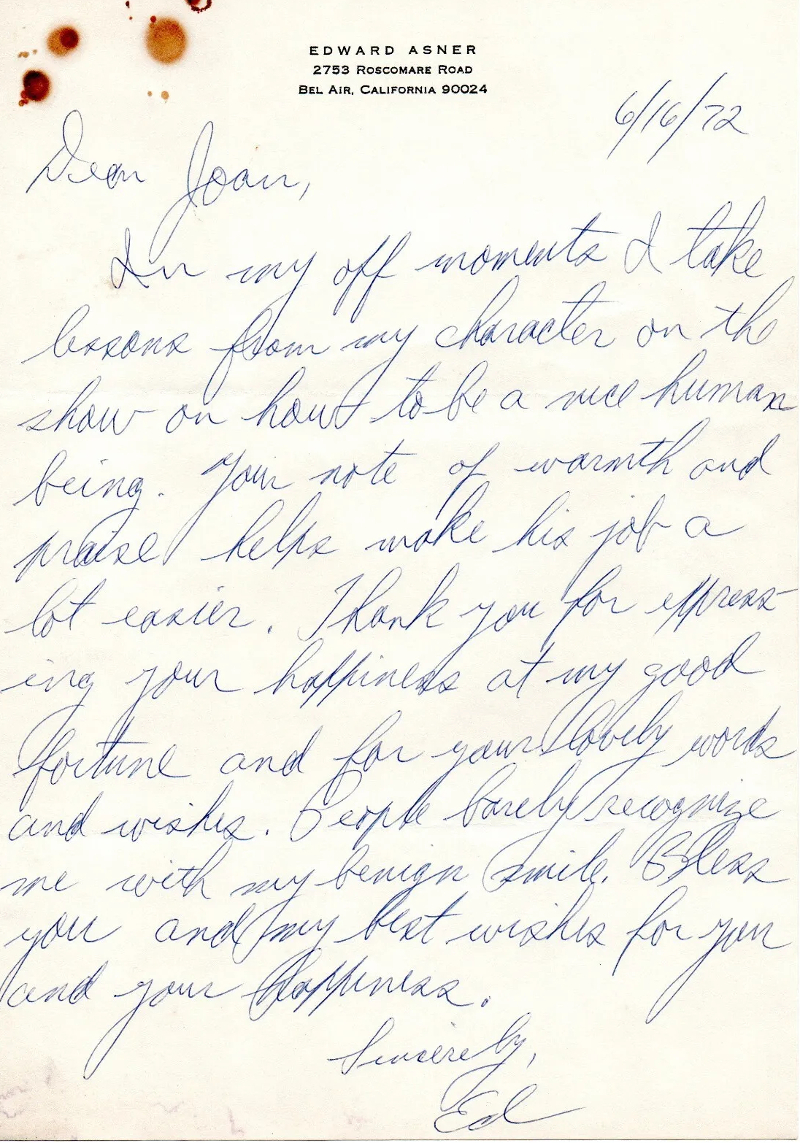 EDWARD ASNER
2753 ROSCOMARE ROAD
BEL AIR, CALIFORNIA 90024
6/16/72
Dear Joan,
In my off moments I take
lessons from my character on the
show on how to be a nice human
being. Your note of warmth and
praise helps make his job a
lot easier. Thank you for express-
ing your happiness at my good
fortune and for your lovely words
and wishes. People barely recognize
me with my benign smile. Bless
you and my best wishes for you
and your happiness.
Sincerely,
Ed